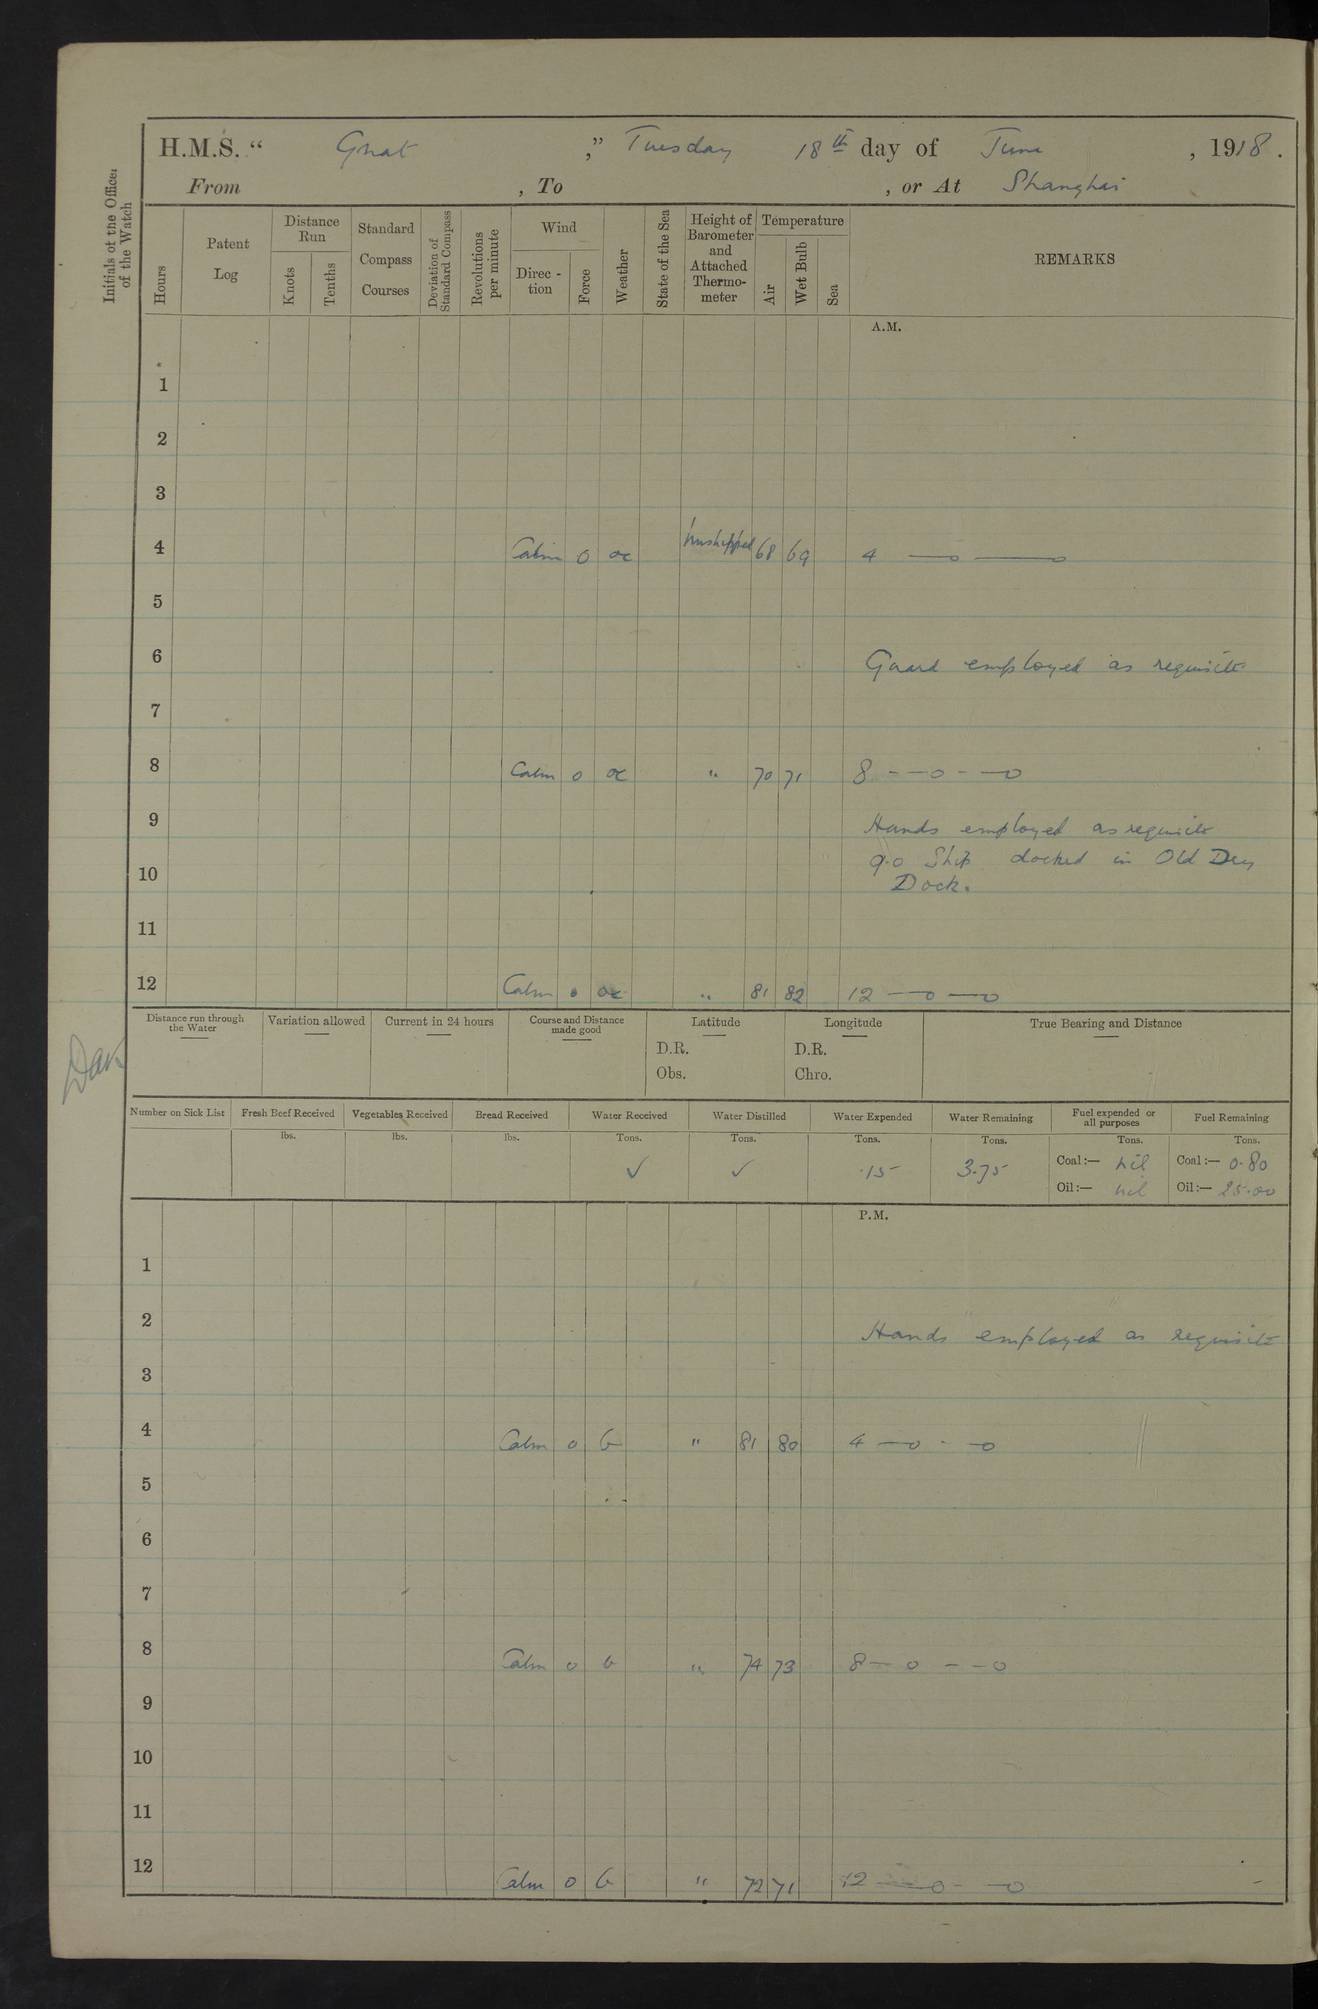 H.M.S. “ Gnat ,” Tuesday 18th day of June , 1918 .
From , To , or At Shanghai
Initials of the Officer of the Watch
Hours
Patent Log
Distance Run
Knots
Tenths
Standard Compass Courses
Deviation of Standard Compass
Revolutions per minute
Wind
Direc - tion
Force
Weather
State of the Sea
Height of Barometer and Attached Thermo- meter
Temperature
Air
Wet Bulb
Sea
REMARKS
A.M.
1
2
3
4 Calm 0 oc Unshipped 68 69 4 —o —o
5
6 Guard employed as requisite
7
8 Calm 0 oc " 70 71 8 - —o - —o
9 Hands employed as requisite
9.0 Ship docked in Old Dry
10 Dock.
11
12 Calm 0 oc " 81 82 12 —o —o
Distance run through the Water
Variation allowed
Current in 24 hours
Course and Distance made good
Latitude
D.R.
Obs.
Longitude
D.R.
Chro.
True Bearing and Distance
Number on Sick List
Fresh Beef Received
lbs.
Vegetables Received
lbs.
Bread Received
lbs.
Water Received
Tons.
✓
Water Distilled
Tons.
✓
Water Expended
Tons.
.15
Water Remaining
Tons.
3.75
Fuel expended or all purposes
Tons.
Coal:— nil
Oil:— nil
Fuel Remaining
Tons.
Coal:— 0.80
Oil:— 25.00
P.M.
1
2 Hands employed as requisite
3
4 Calm 0 b " 81 80 4 —o - —o
5
6
7
8 Calm 0 b " 74 73 8 — o - - o
9
10
11
12 Calm 0 b " 72 71 12 —o - —o